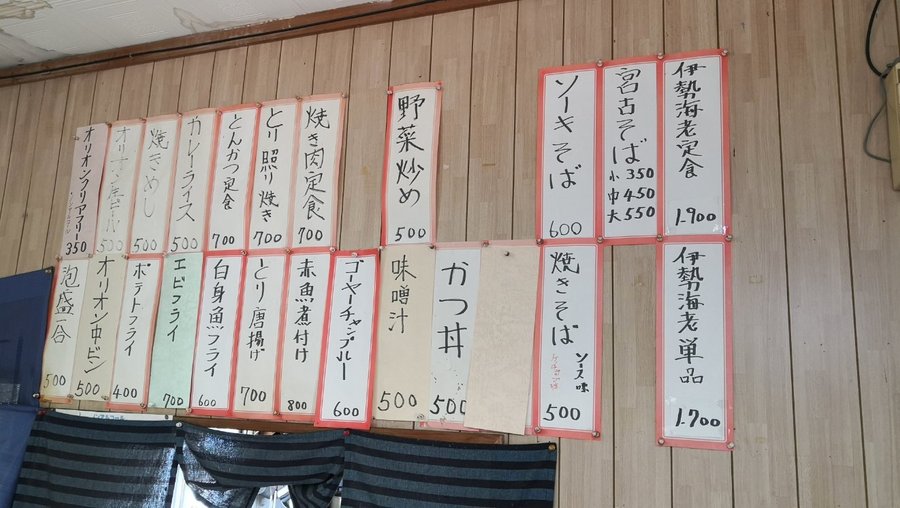 伊勢海老定食
1.900
宮古そば
小 350
中 450
大 550
ソーキそば
600
野菜炒め
500
焼き肉定食
700
とり照り焼き
700
とんかつ定食
700
カレーライス
500
焼きめし
500
オリオン生ビール
500
オリオンフリアフリー
ノンアルコール
350
伊勢海老単品
1.700
焼きそば
ソース味
500
かつ丼
500
味噌汁
500
ゴーヤーチャンプルー
600
赤魚煮付け
800
とり唐揚げ
700
白身魚フライ
600
エビフライ
700
ポテトフライ
400
オリオン中ビン
500
泡盛一合
500